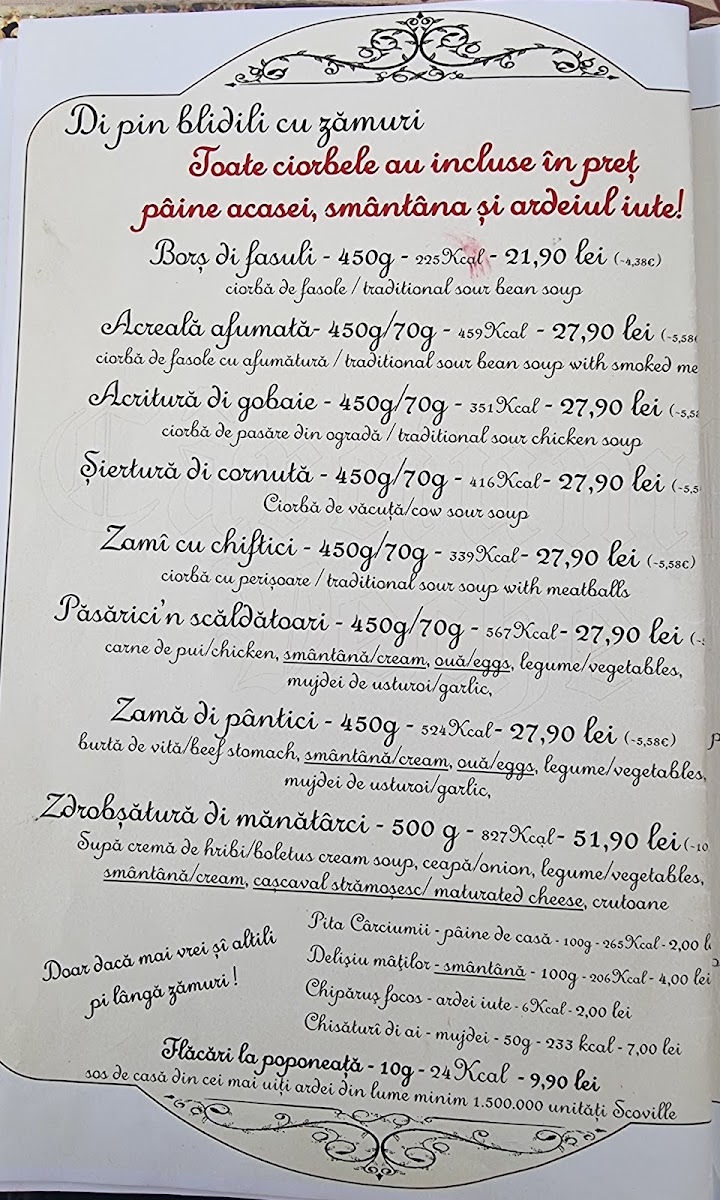 Di pin blidili cu zămuri
Toate ciorbele au incluse în preț
pâine acasei, smântâna și ardeiul iute!
Borș di fasuli - 450g - 225Kcal - 21,90 lei (~4,38€)
ciorbă de fasole / traditional sour bean soup
Acreală afumată- 450g/70g - 459Kcal - 27,90 lei (~5,58€
ciorbă de fasole cu afumătură / traditional sour bean soup with smoked me
Acritură di gobaie - 450g/70g - 351Kcal - 27,90 lei (~5,5
ciorbă de pasăre din ogradă / traditional sour chicken soup
Șiertură di cornută - 450g/70g - 416Kcal - 27,90 lei (~5,5
Ciorbă de văcuță/cow sour soup
Zamî cu chiftici - 450g/70g - 339Kcal - 27,90 lei (~5,58€)
ciorbă cu perișoare / traditional sour soup with meatballs
Păsărici'n scăldătoari - 450g/70g - 567Kcal - 27,90 lei (~
carne de pui/chicken, smântână/cream, ouă/eggs, legume/vegetables,
mujdei de usturoi/garlic,
Zamă di pântici - 450g - 524Kcal - 27,90 lei (~5,58€)
burtă de vită/beef stomach, smântână/cream, ouă/eggs, legume/vegetables,
mujdei de usturoi/garlic,
Zdrobșătură di mănătârci - 500 g - 827Kcal - 51,90 lei (~10
Supă cremă de hribi/boletus cream soup, ceapă/onion, legume/vegetables,
smântână/cream, cașcaval strămoșesc/ maturated cheese, crutoane
Doar dacă mai vrei șî altili
pi lângă zămuri !
Pita Cârciumii - pâine de casă - 100g - 265Kcal - 2,00 l
Delișiu mâților - smântână - 100g - 206Kcal - 4,00 lei
Chipăruș focos - ardei iute - 6Kcal - 2,00 lei
Chisăturî di ai - mujdei - 50g - 233 kcal - 7,00 lei
Flăcări la poponeață - 10g - 24Kcal - 9,90 lei
sos de casă din cei mai uiți ardei din lume minim 1.500.000 unități Scoville